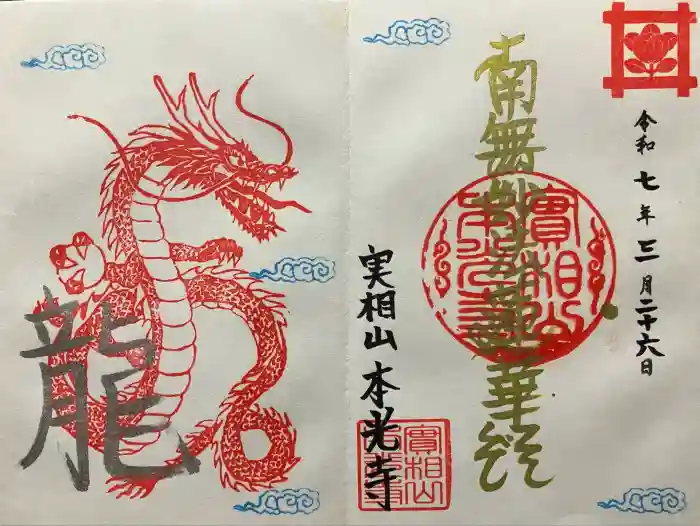 令和七年三月二十六日
南無妙法蓮華経
實相山
本光寺
実相山 本光寺
實相山
龍